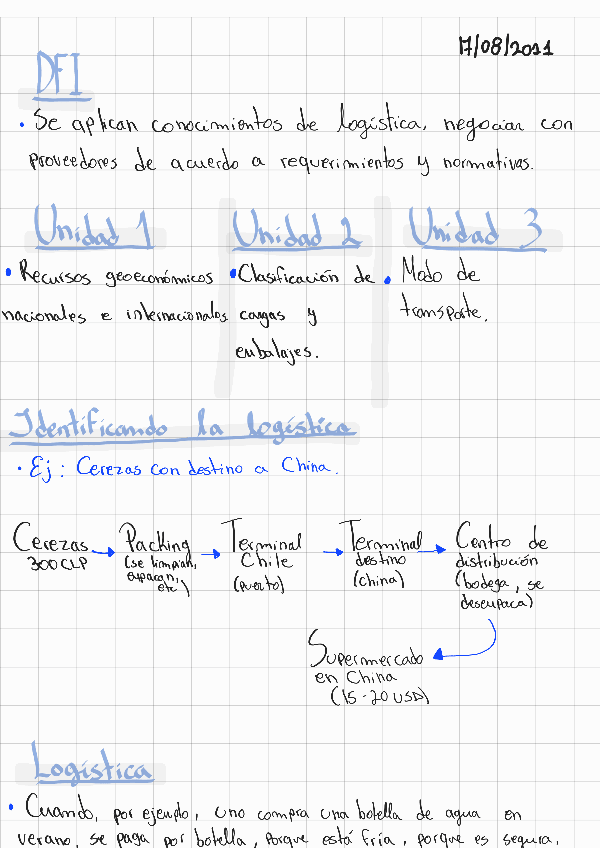 17/08/2021
DFI
• Se aplican conocimientos de logística, negociar con
proveedores de acuerdo a requerimientos y normativas.
Unidad 1
• Recursos geoeconómicos
nacionales e internacionales
Unidad 2
• Clasificación de
cargas y
embalajes.
Unidad 3
• Modo de
transporte.
Identificando la logística
• Ej: Cerezas con destino a China.
Cerezas
300 CLP
Packing
(se limpian,
empacan,
etc)
Terminal
Chile
(puerto)
Terminal
destino
(China)
Centro de
distribución
(bodega, se
desempaca)
Supermercado
en China
(15-20 USD)
Logística
• Cuando, por ejemplo, uno compra una botella de agua en
verano, se paga por botella, porque está fría, porque es segura,